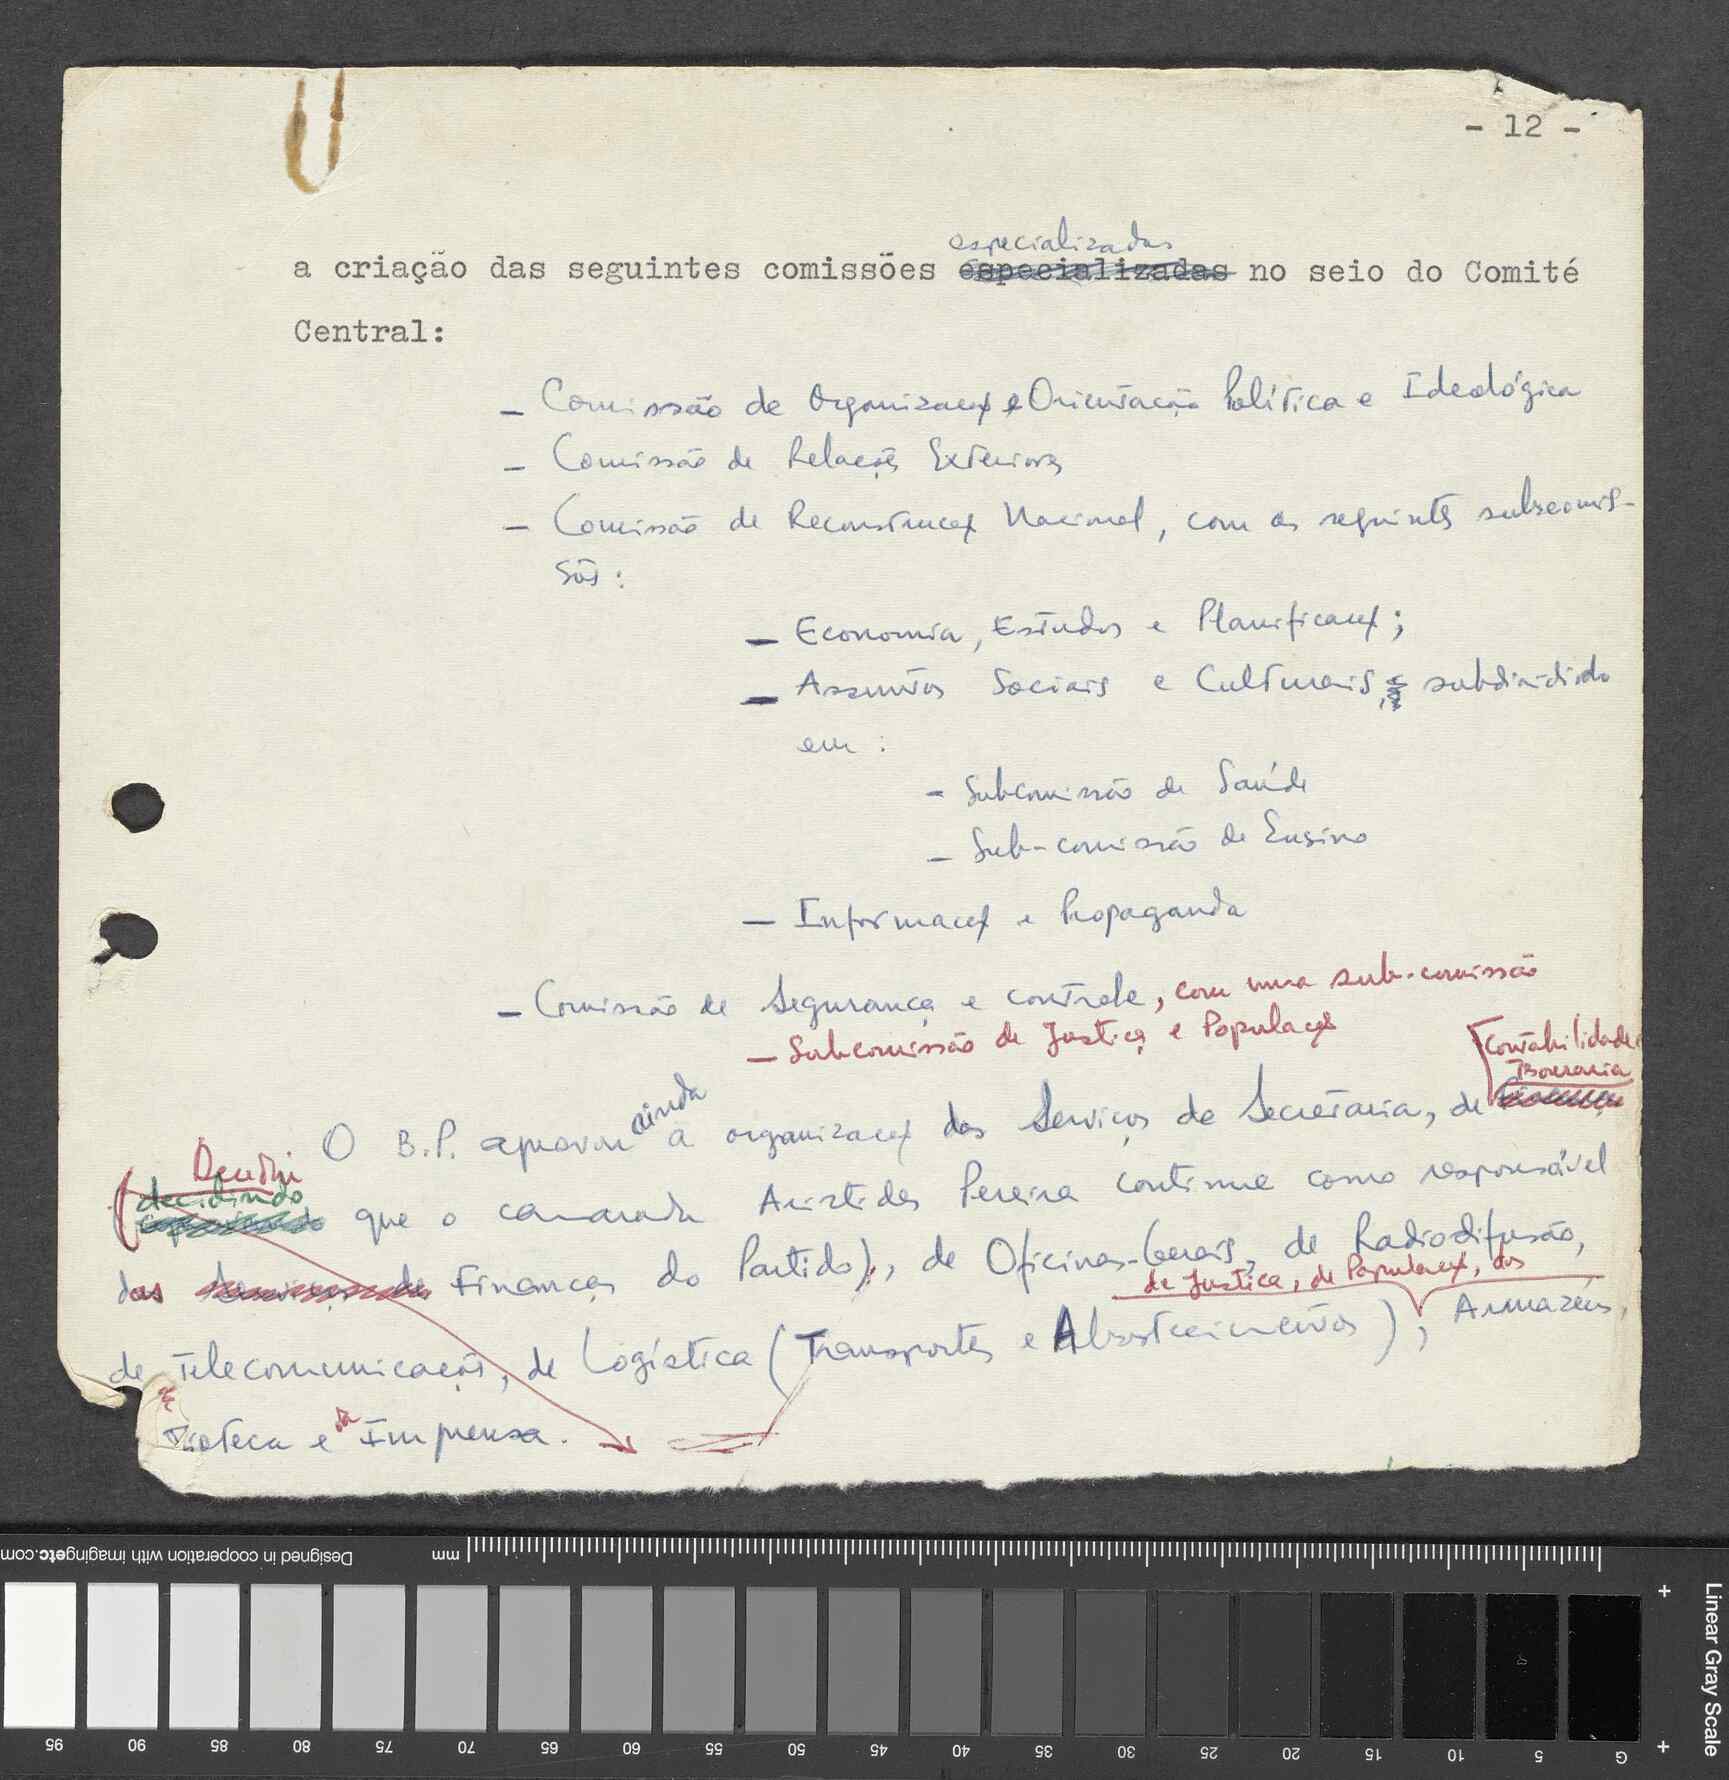 - 12 -
especializadas
a criação das seguintes comissões especializadas no seio do Comité
Central:
- Comissão de Organização e Orientação Política e Ideológica
- Comissão de Relações Exteriores
- Comissão de Reconstrução Nacional, com as seguintes subcomis-
sões:
- Economia, Estudos e Planificação;
- Assuntos Sociais e Culturais, subdividido
em:
- Subcomissão de Saúde
- Sub-comissão de Ensino
- Informação e Propaganda
- Comissão de Segurança e controle, com uma sub-comissão
- Subcomissão de Justiça e População
Contabilidade e
Tesouraria
O B.P. aprovou ainda a organização dos Serviços de Secretaria, de
Decidiu
decidindo que o camarada Aristides Pereira continue como responsável
das Finanças do Partido), de Oficinas-Gerais, de Radiodifusão,
de Justiça, de População, dos
de Telecomunicações, de Logística (Transportes e Abastecimentos), Armazéns,
e da Imprensa.
Designed in cooperation with imagingetc.com
mm
95 90 85 80 75 70 65 60 55 50 45 40 35 30 25 20 15 10 5 G
Linear Gray Scale